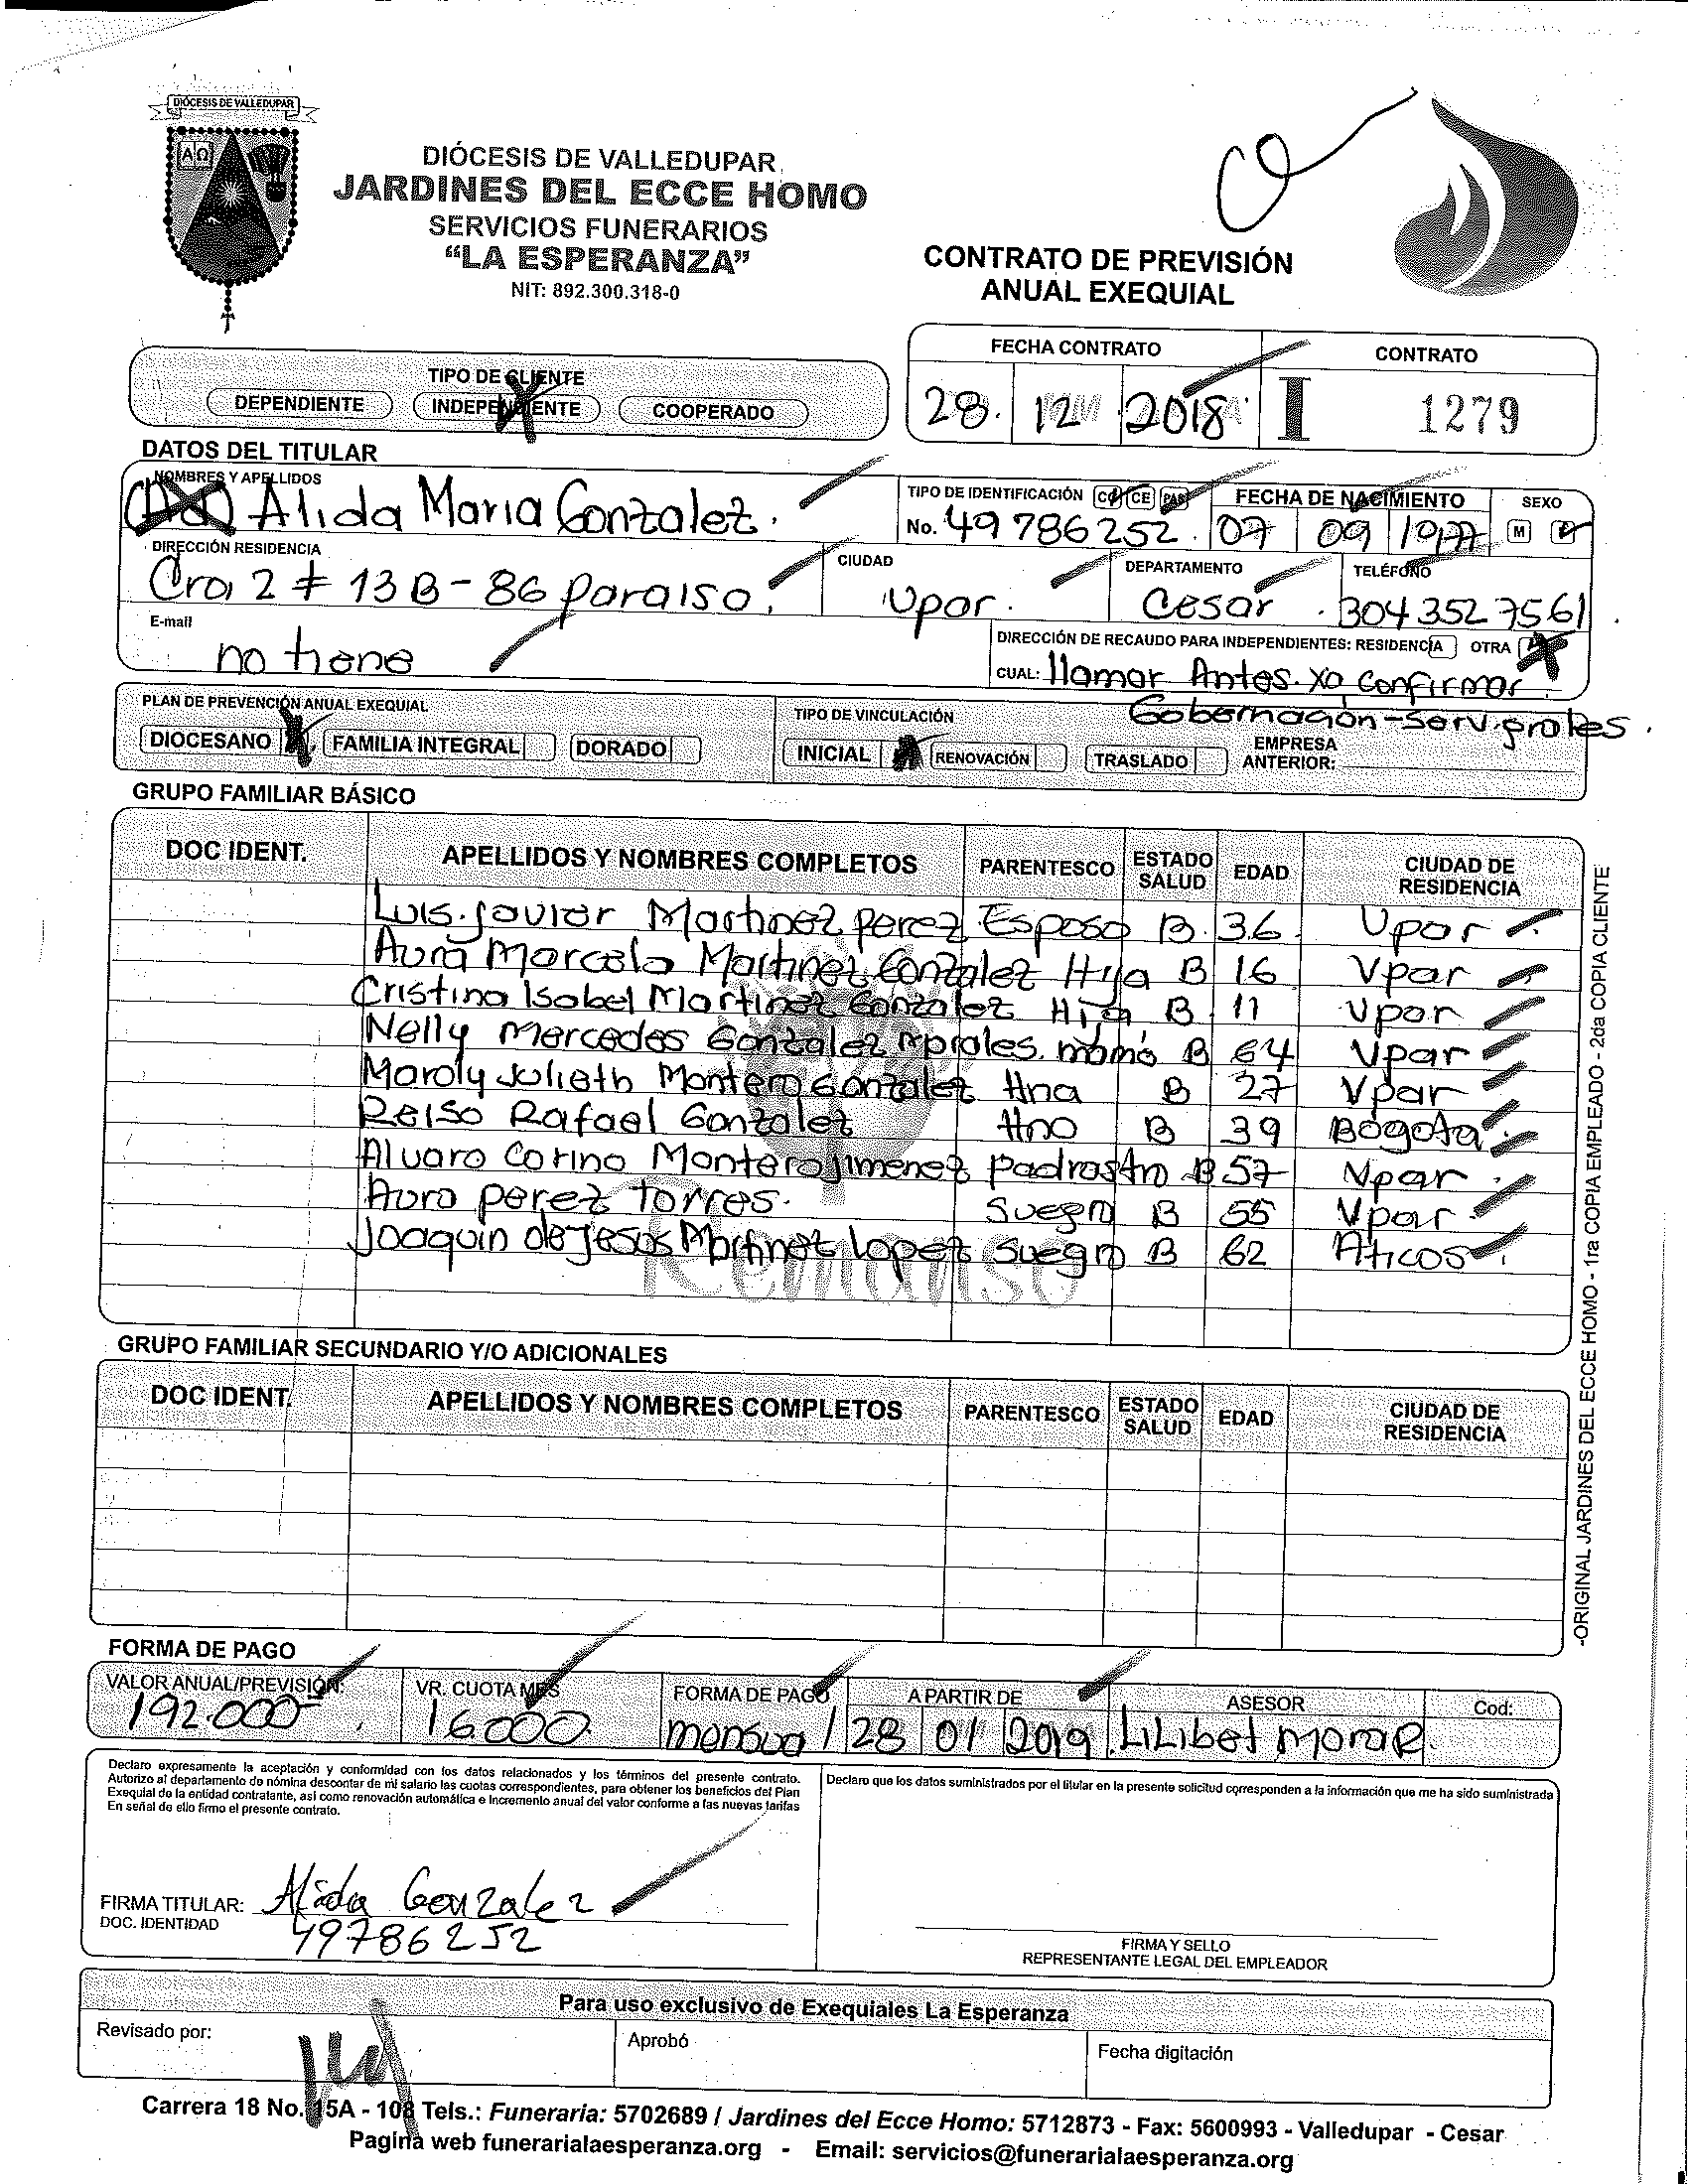 DIÓCESIS DE VALLEDUPAR
AΩ
DIÓCESIS DE VALLEDUPAR
JARDINES DEL ECCE HOMO
SERVICIOS FUNERARIOS
“LA ESPERANZA”
NIT: 892.300.318-0
CONTRATO DE PREVISIÓN
ANUAL EXEQUIAL
FECHA CONTRATO CONTRATO
28. 12 2018 I 1279
TIPO DE CLIENTE
DEPENDIENTE INDEPENDIENTE X COOPERADO
DATOS DEL TITULAR
NOMBRES Y APELLIDOS TIPO DE IDENTIFICACIÓN CC CE PAS FECHA DE NACIMIENTO SEXO
Alida Maria Gonzalez. No. 49786252. 07 09 1977 M F
DIRECCIÓN RESIDENCIA CIUDAD DEPARTAMENTO TELÉFONO
Cra 2 # 13B-86 paraiso. Vpar. Cesar 304 352 7561
E-mail DIRECCIÓN DE RECAUDO PARA INDEPENDIENTES: RESIDENCIA OTRA X
no tiene CUAL: llamar Antes. xa confirmar
Gobernación-serv.
PLAN DE PREVENCIÓN ANUAL EXEQUIAL TIPO DE VINCULACIÓN
DIOCESANO X FAMILIA INTEGRAL DORADO INICIAL X RENOVACIÓN TRASLADO EMPRESA ANTERIOR:
GRUPO FAMILIAR BÁSICO
DOC IDENT. APELLIDOS Y NOMBRES COMPLETOS PARENTESCO ESTADO SALUD EDAD CIUDAD DE RESIDENCIA
Luis Javier Martinez perez Esposo B. 36 Vpar
Aura Marcela Martinez Gonzalez Hija B 16 Vpar
Cristina Isabel Martinez Gonzalez Hija B 11 Vpar
Nelly Mercedes Gonzalez mamá B 64 Vpar
Maroly Julieth Montero Gonzalez Hna B 27 Vpar
Relso Rafael Gonzalez Hno B 39 Bogota
Alvaro Corino Montero Jimenez padrastro B 57 Vpar
Aura perez torres. Suegra B 55 Vpar
Joaquin de Jesus Martinez lopez Suegro B 62 Aticos
Remanso
GRUPO FAMILIAR SECUNDARIO Y/O ADICIONALES
DOC IDENT. APELLIDOS Y NOMBRES COMPLETOS PARENTESCO ESTADO SALUD EDAD CIUDAD DE RESIDENCIA
-ORIGINAL JARDINES DEL ECCE HOMO - 1ra COPIA EMPLEADO - 2da COPIA CLIENTE
FORMA DE PAGO
VALOR ANUAL/PREVISIÓN: VR. CUOTA MES FORMA DE PAGO A PARTIR DE ASESOR Cod:
192.000 16.000 mensual 28 01 2019 LILibet Mora R.
Declaro expresamente la aceptación y conformidad con los datos relacionados y los términos del presente contrato.
Autorizo al departamento de nómina descontar de mi salario las cuotas correspondientes, para obtener los beneficios del Plan
Exequial de la entidad contratante, asi como renovación automática e incremento anual del valor conforme a las nuevas tarifas
En señal de ello firmo el presente contrato.
Declaro que los datos suministrados por el titular en la presente solicitud corresponden a la información que me ha sido suministrada
FIRMA TITULAR: Alida Gonzalez
DOC. IDENTIDAD 49786252
FIRMA Y SELLO
REPRESENTANTE LEGAL DEL EMPLEADOR
Para uso exclusivo de Exequiales La Esperanza
Revisado por: Aprobó Fecha digitación
Carrera 18 No. 15A - 108 Tels.: Funeraria: 5702689 / Jardines del Ecce Homo: 5712873 - Fax: 5600993 - Valledupar - Cesar
Pagina web funerarialaesperanza.org - Email: servicios@funerarialaesperanza.org